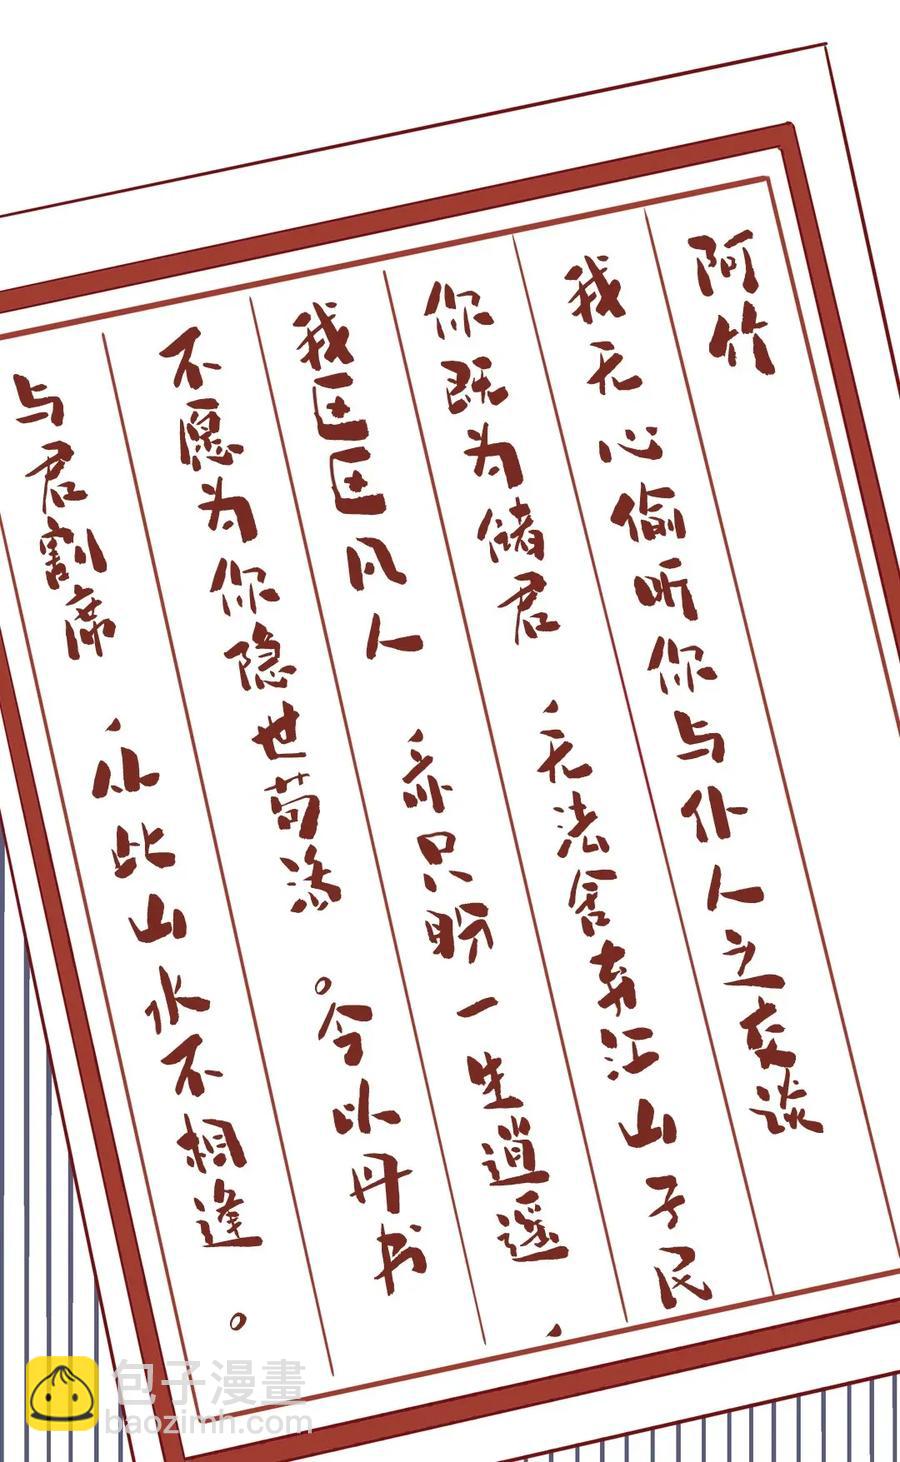 阿竹
我无心偷听你与仆人之交谈
你既为储君，无法舍弃江山子民
我区区凡人，亦只盼一生逍遥，
不愿为你隐世苟活。今以丹书
与君割席，从此山水不相逢。
包子漫畫
baozimh.com